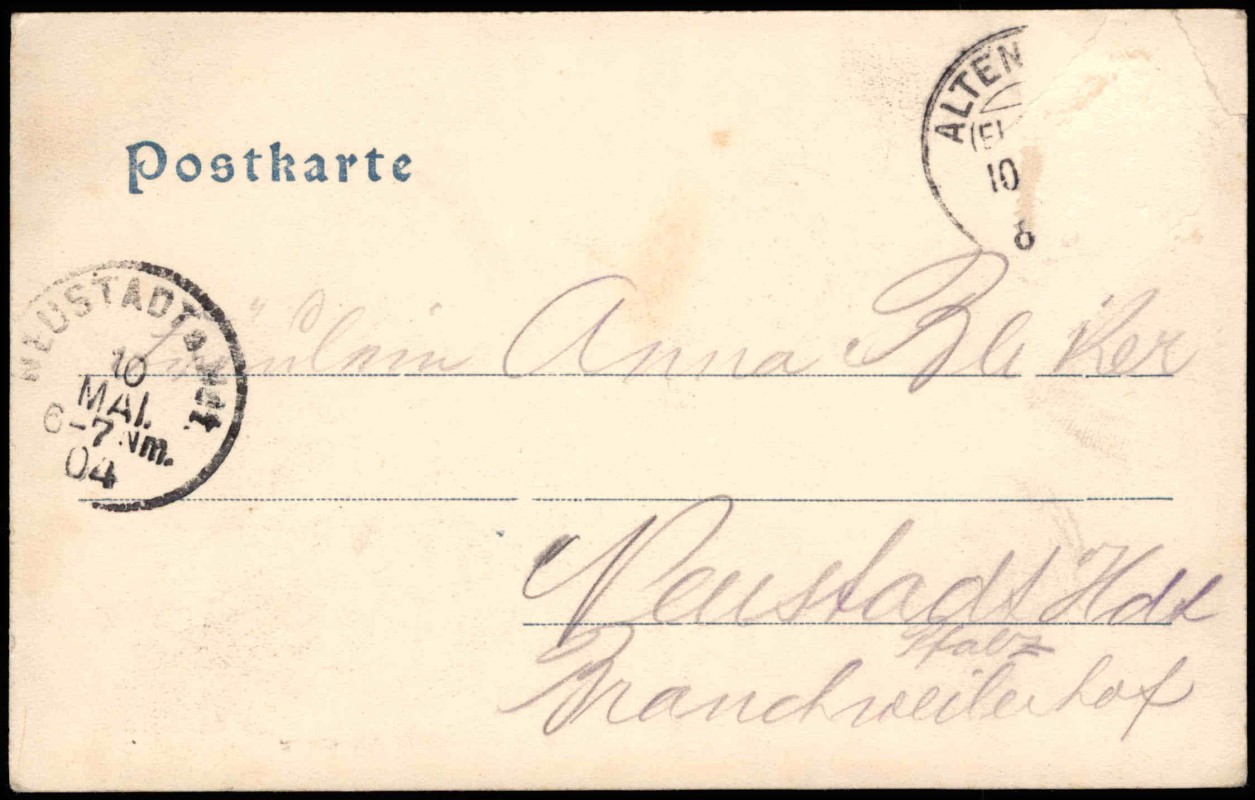 Postkarte
ALTEN
(El
10
8
NEUSTADT a. Hdt.
10
MAI.
6-7 Nm.
04
Fräulein Anna Bleiker
Neustadt Hdt
Pfalz
Branchweilerhof